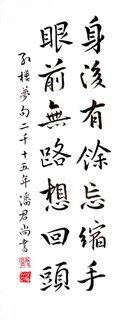 身後有餘忘縮手
眼前無路想回頭
紅樓夢句二千十五年潘君尚書